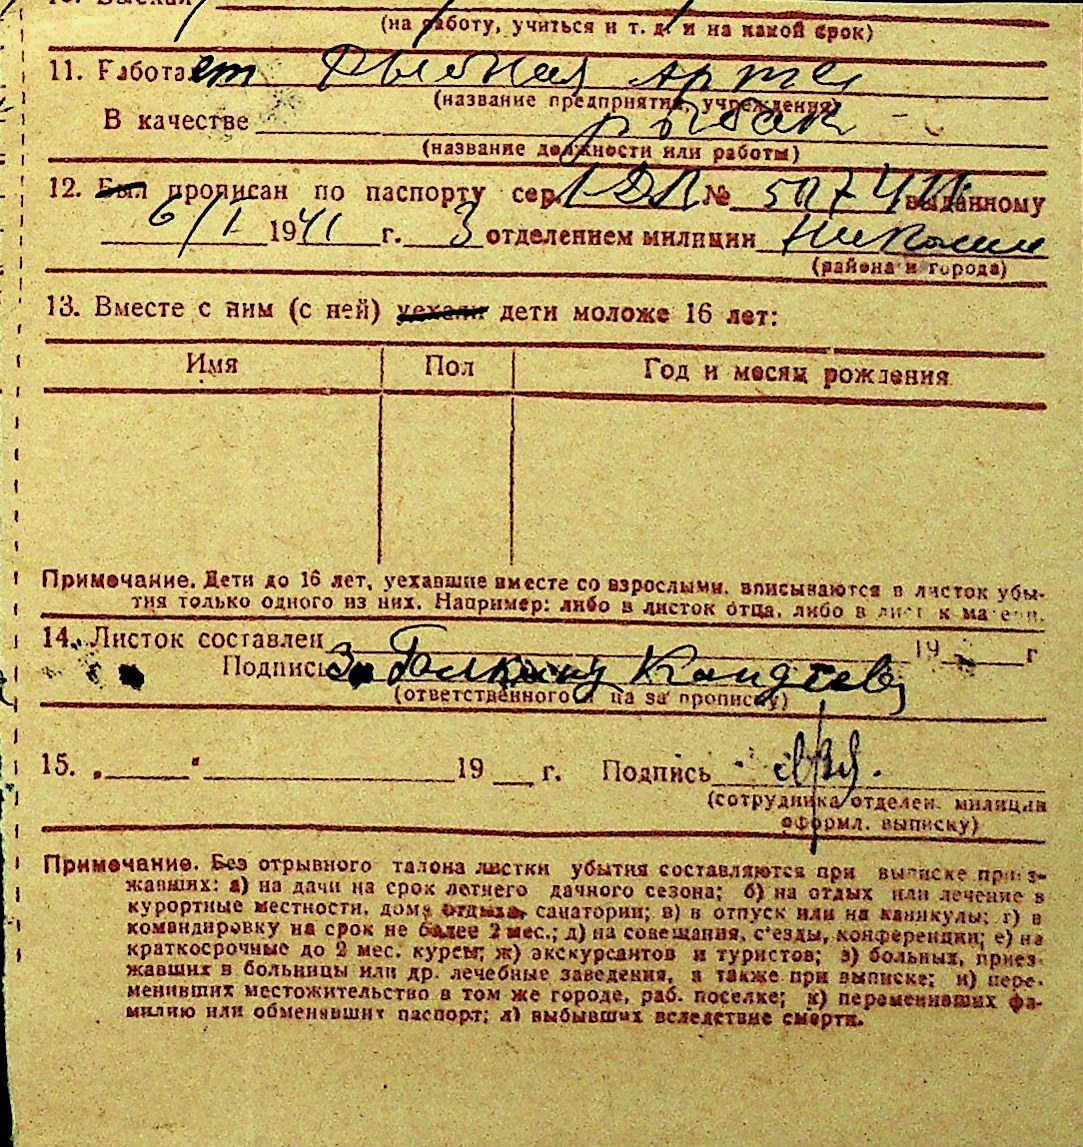 (на работу, учиться и т. д. и на какой срок)
11. Работает Рыбная Арте
(название предприятия, учреждения)
В качестве рыбак
(название должности или работы)
12. Был прописан по паспорту сер. № выданному
6/I 1941 г. 3 отделением милиции
(района и города)
13. Вместе с ним (с ней) уехали дети моложе 16 лет:
Имя Пол Год и месяц рождения
Примечание. Дети до 16 лет, уехавшие вместе со взрослыми, вписываются в листок убы-
тия только одного из них. Например: либо в листок отца, либо в лист к матери.
14. Листок составлен 19 г
Подпись За
(ответственного ца за прописку)
15. „ “ 19 г. Подпись
(сотрудника отделен. милиции
оформл. выписку)
Примечание. Без отрывного талона листки убытия составляются при выписке приез-
жавших: а) на дачи на срок летнего дачного сезона; б) на отдых или лечение в
курортные местности, дома отдыха, санатории; в) в отпуск или на каникулы; г) в
командировку на срок не более 2 мес.; д) на совещания, с'езды, конференции; е) на
краткосрочные до 2 мес. курсы; ж) экскурсантов и туристов; з) больных, приез-
жавших в больницы или др. лечебные заведения, а также при выписке; и) пере-
менивших местожительство в том же городе, раб. поселке; к) переменивших фа-
милию или обменявших паспорт; л) выбывших вследствие смерти.